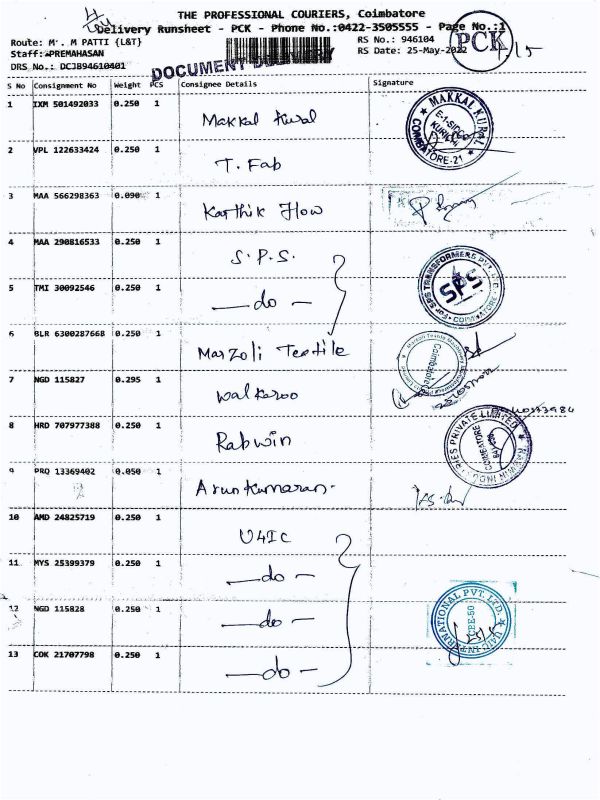 THE PROFESSIONAL COURIERS, Coimbatore
Delivery Runsheet - PCK - Phone No.:0422-3505555 - Page No.:1
Route: M . M PATTI {L&T}
RS No.: 946104
Staff: PREMAHASAN
RS Date: 25-May-2022
PCK
DRS No.: DCJB94610401
DOCUMENT
S No Consignment No Weight PCS Consignee Details Signature
1 IXM 501492033 0.250 1 Makkal Kural
MAKKAL KURAL COIMBATORE-21
2 VPL 122633424 0.250 1 T. Fab
3 MAA 566298363 0.090 1 Karthik Flow
4 MAA 290816533 0.250 1 S.P.S.
5 TMI 30092546 0.250 1 —do—
For SPS TRANSFORMERS PVT. LTD. COIMBATORE SPS
6 BLR 6300287668 0.250 1 Marzoli Textile
Coimbatore
7 NGD 115827 0.295 1 Walkaroo
8 HRD 707977388 0.250 1 Rabwin
COIMBATORE
9 PRQ 13369402 0.050 1 Arunkumaran
10 AMD 24825719 0.250 1 U4IC
11 MYS 25399379 0.250 1 —do—
12 NGD 115828 0.250 1 —do—
U4IC INTERNATIONAL PVT. LTD. CBE-50
13 COK 21707798 0.250 1 —do—